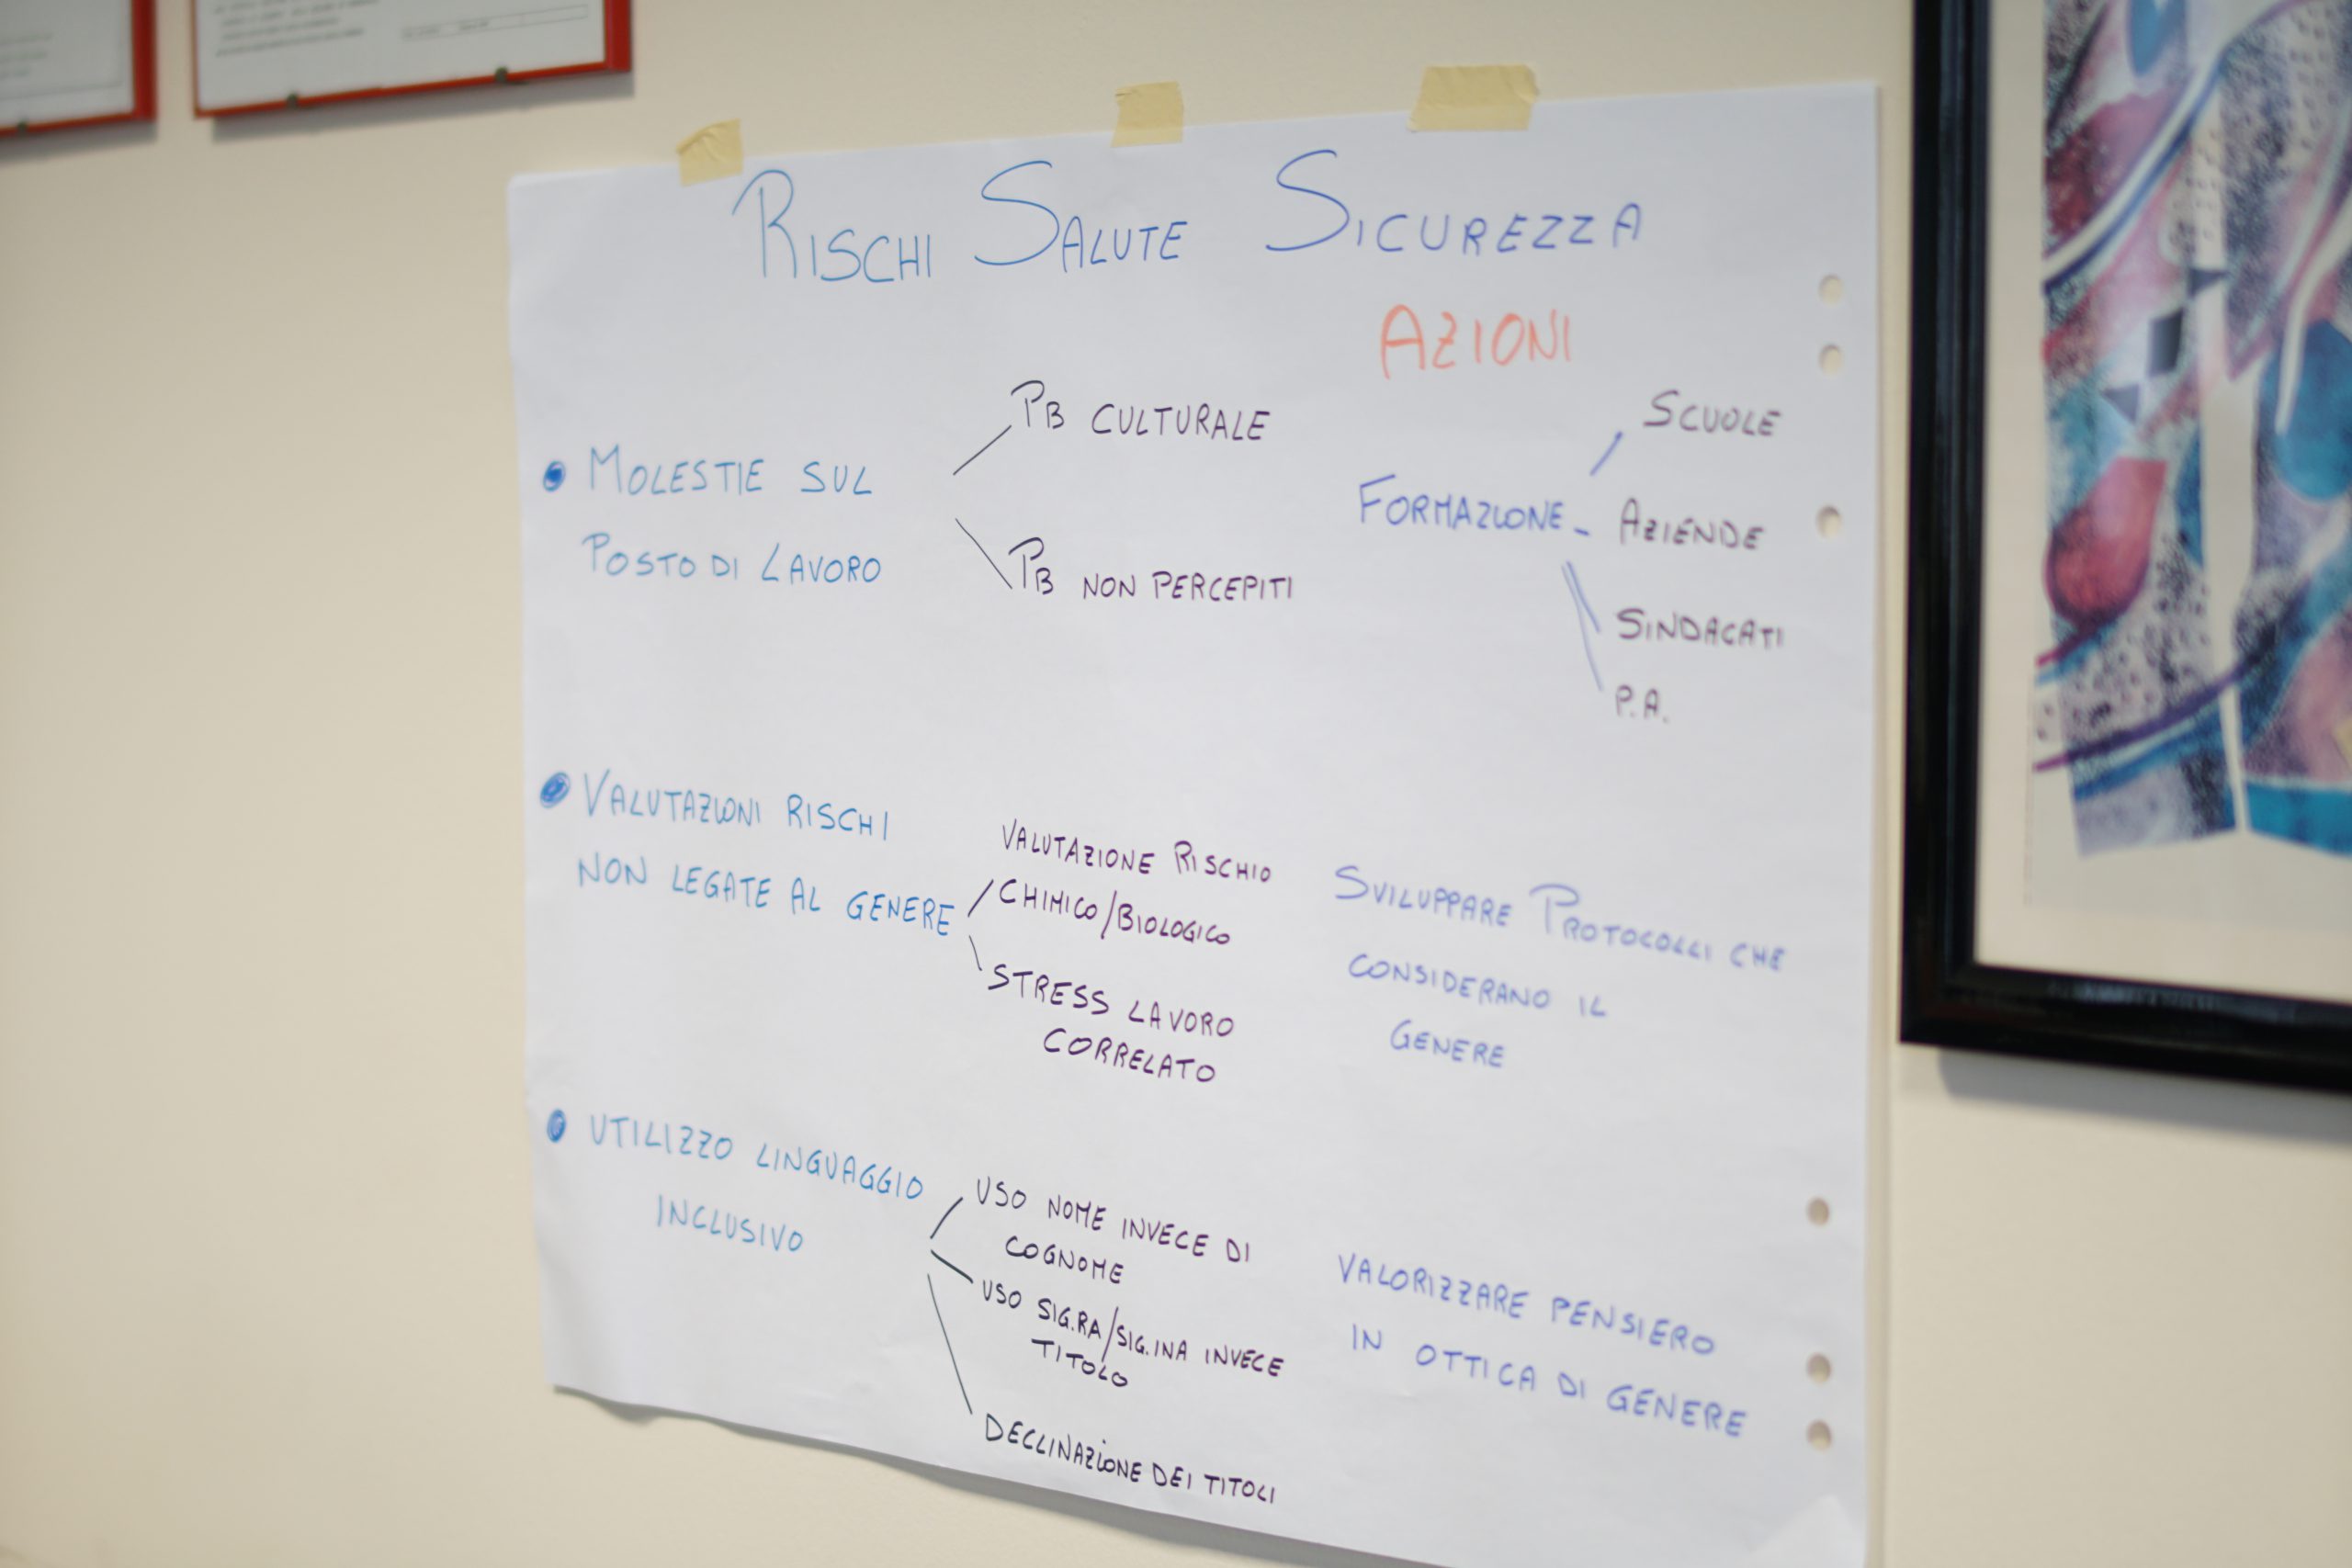 RISCHI SALUTE SICUREZZA
AZIONI
MOLESTIE SUL
POSTO DI LAVORO
PB CULTURALE
PB NON PERCEPITI
FORMAZIONE
SCUOLE
AZIENDE
SINDACATI
P.A.
VALUTAZIONI RISCHI
NON LEGATE AL GENERE
VALUTAZIONE RISCHIO
CHIMICO/BIOLOGICO
STRESS LAVORO
CORRELATO
SVILUPPARE PROTOCOLLI CHE
CONSIDERANO IL
GENERE
UTILIZZO LINGUAGGIO
INCLUSIVO
USO NOME INVECE DI
COGNOME
USO SIG.RA/SIG.INA INVECE
TITOLO
DECLINAZIONE DEI TITOLI
VALORIZZARE PENSIERO
IN OTTICA DI GENERE